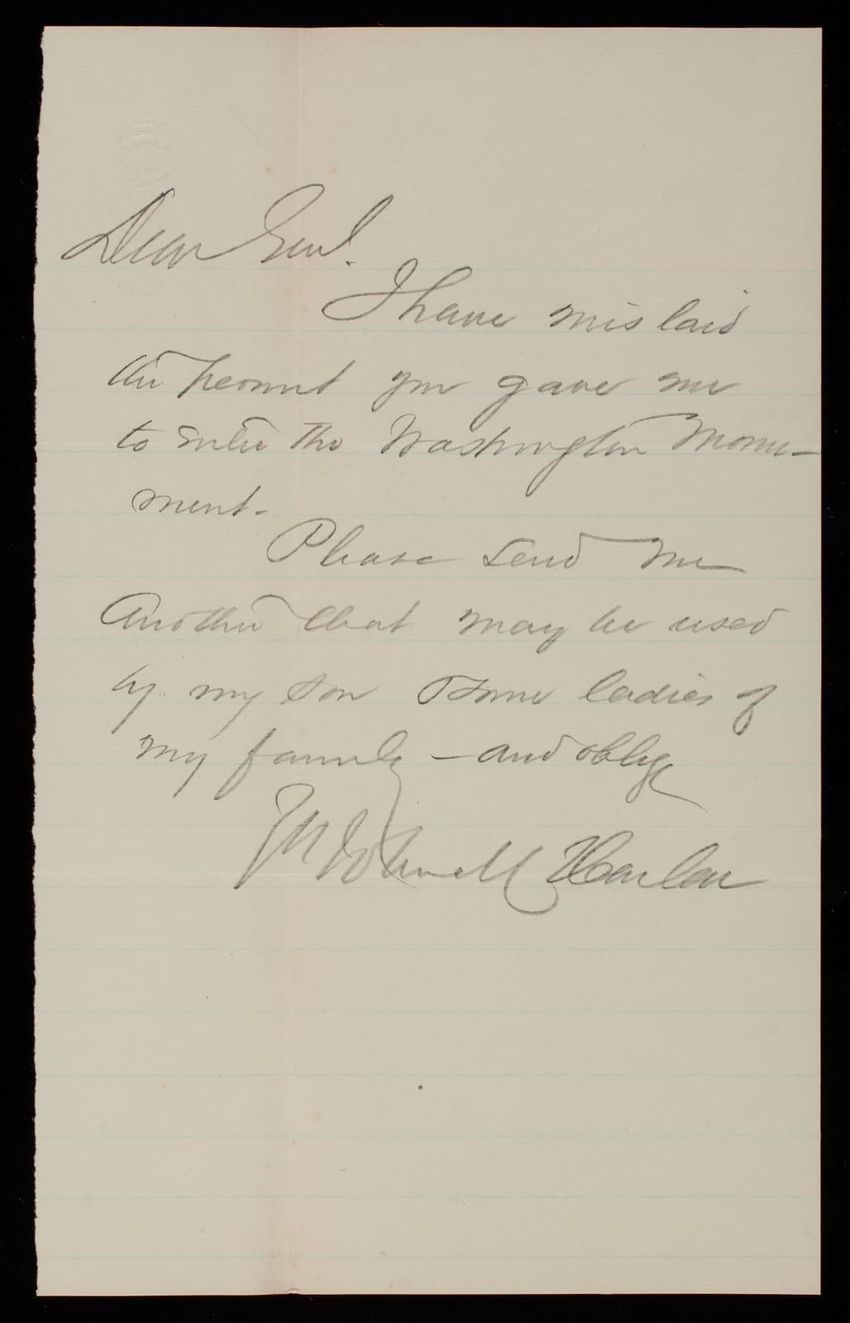 Dear Genl.
I have mislaid
the permit you gave me
to enter the Washington Monu-
ment.
Please send me
another that may be used
by my son & some ladies of
my family - and oblige
Harlan